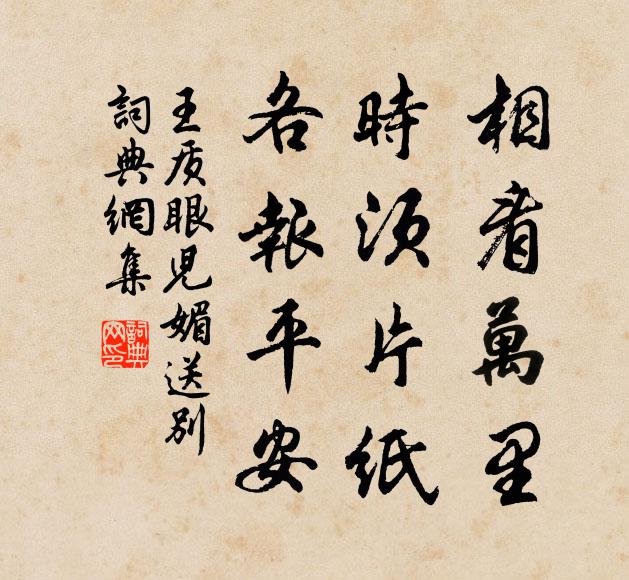 相看萬里
時須片紙
各報平安
王质眼児媚送别
詞典網集
詞典網印